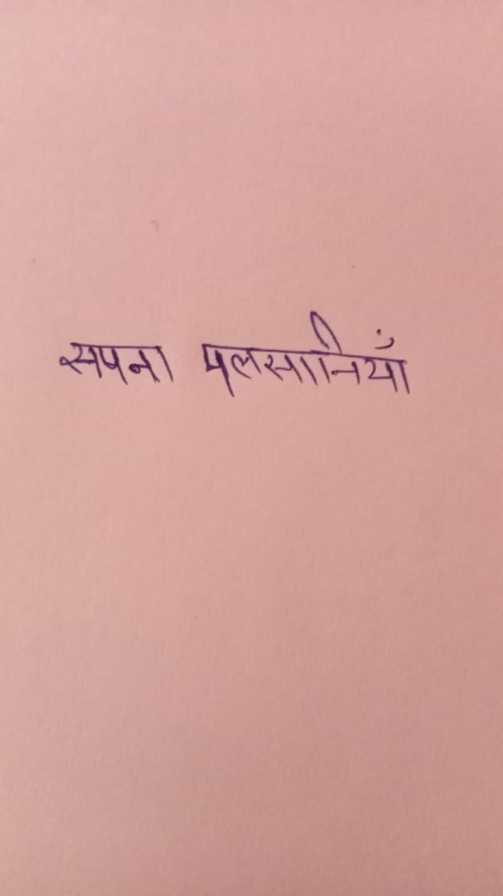 सपना पलसानियाँ